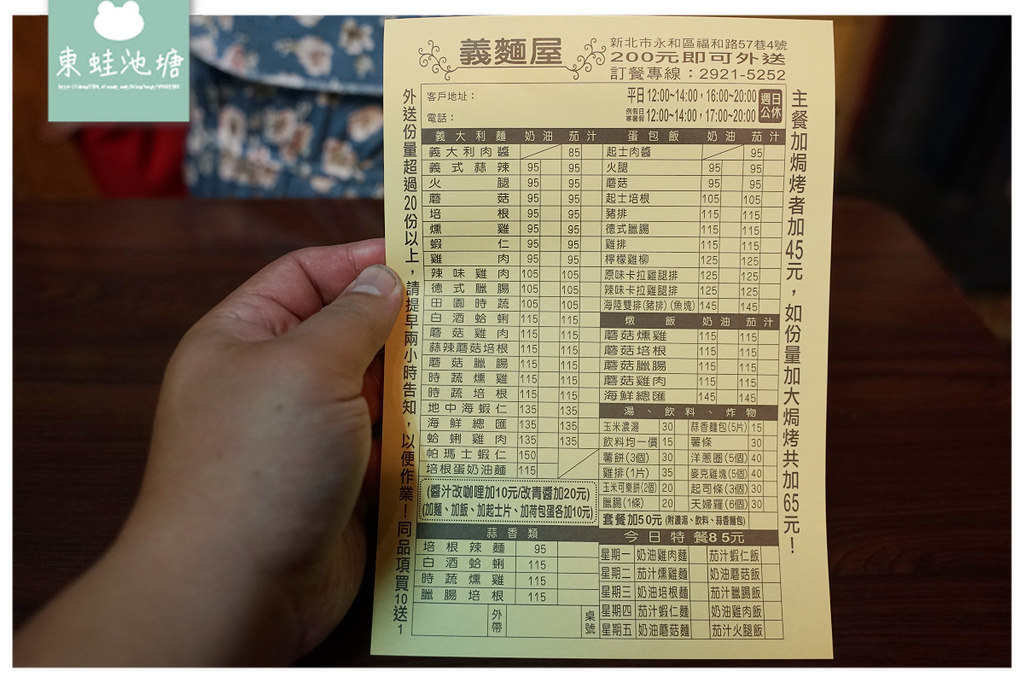 東蛙池塘
義麵屋
新北市永和區福和路57巷4號
200元即可外送
訂餐專線：2921-5252
客戶地址：
電話：
平日 12:00~14:00，16:00~20:00
例假日 寒暑假 12:00~14:00，17:00~20:00
週日公休
外送份量超過20份以上，請提早兩小時告知，以便作業！同品項買10送1
主餐加焗烤者加45元，如份量加大焗烤共加65元！
義大利麵 奶油 茄汁
義大利肉醬 85
義式蒜辣 95 95
火腿 95 95
蘑菇 95 95
培根 95 95
燻雞 95 95
蝦仁 95 95
雞肉 95 95
辣味雞肉 105 105
德式臘腸 105 105
田園時蔬 105 105
白酒蛤蜊 115 115
蘑菇雞肉 115 115
蒜辣蘑菇培根 115 115
蘑菇臘腸 115 115
時蔬燻雞 115 115
時蔬培根 115 115
地中海蝦仁 135 135
海鮮總匯 135 135
蛤蜊雞肉 135 135
帕瑪士蝦仁 150
培根蛋奶油麵 115
(醬汁改咖哩加10元/改青醬加20元)
(加麵、加飯、加起士片、加荷包蛋各加10元)
蒜香類
培根辣麵 95
白酒蛤蜊 115
時蔬燻雞 115
臘腸培根 115
外帶
桌號
蛋包飯 奶油 茄汁
起士肉醬 95
火腿 95 95
蘑菇 95 95
起士培根 105 105
豬排 115 115
德式臘腸 115 115
雞排 115 115
檸檬雞柳 125 125
原味卡拉雞腿排 125 125
辣味卡拉雞腿排 125 125
海陸雙排(豬排)(魚塊) 145 145
燉飯 奶油 茄汁
蘑菇燻雞 115 115
蘑菇培根 115 115
蘑菇臘腸 115 115
蘑菇雞肉 115 115
海鮮總匯 145 145
湯、飲料、炸物
玉米濃湯 30 蒜香麵包(5片) 15
飲料均一價 15 薯條 30
薯餅(3個) 30 洋蔥圈(5個) 40
雞排(1片) 35 麥克雞塊(5個) 40
玉米可樂餅(2個) 20 起司條(3個) 30
臘腸(1條) 20 天婦羅(6個) 30
套餐加50元(附濃湯、飲料、蒜香麵包)
今日特餐85元
星期一 奶油雞肉麵 茄汁蝦仁飯
星期二 茄汁燻雞麵 奶油蘑菇飯
星期三 奶油培根麵 茄汁臘腸飯
星期四 茄汁蝦仁麵 奶油雞肉飯
星期五 奶油蘑菇麵 茄汁火腿飯